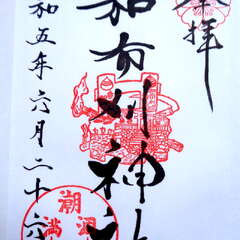 奉拝
和布刈神社
和五年六月二十六
潮
満